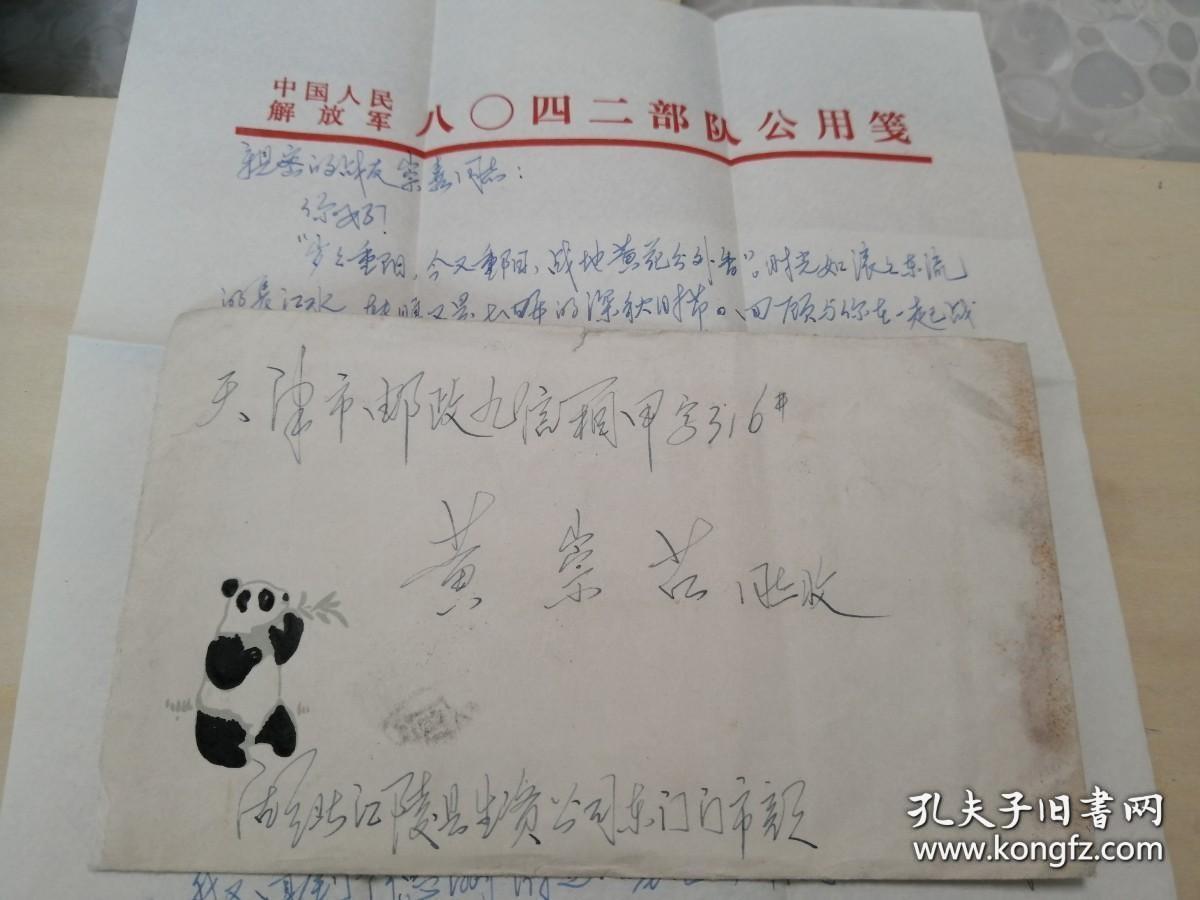 中国人民
解放军
八〇四二部队公用笺
亲密的战友崇嘉同志：
你好！
"岁岁重阳，今又重阳，战地黄花分外香"。时光如滚滚东流
的长江水 转眼又是七四年的深秋时节。回顾与你在一起战
天津市邮政九信箱甲字316#
黄崇 同志收
江陵县生资公司东门门市部
孔夫子旧书网
www.kongfz.com